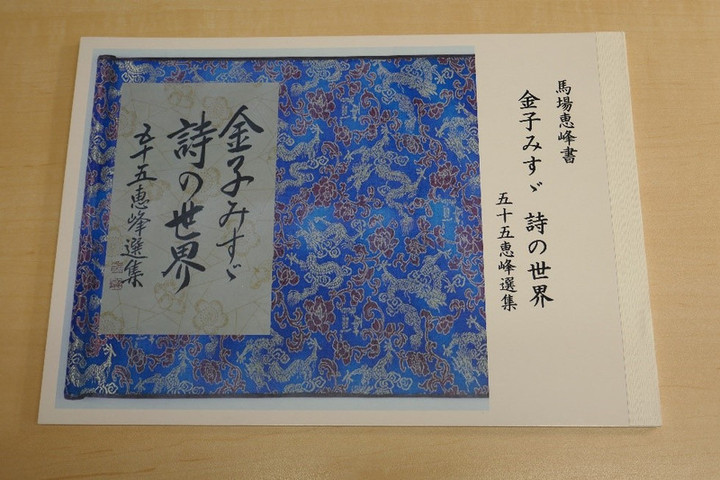 馬場恵峰書
金子みすゞ 詩の世界
五十五恵峰選集
金子みすゞ
詩の世界
五十五恵峰選集